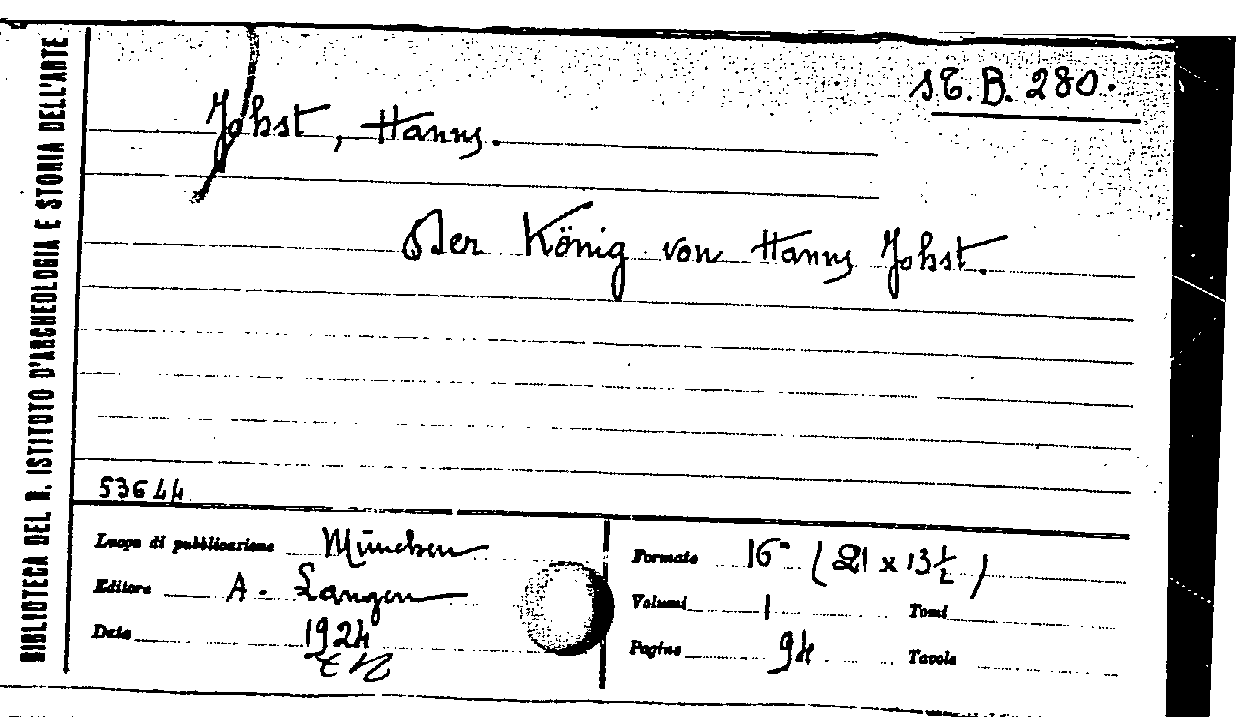 BIBLIOTECA DEL R. ISTITUTO D'ARCHEOLOGIA E STORIA DELL'ARTE
St. B. 280.
Johst, Hanns.
Der König von Hanns Johst.
53644
Luogo di pubblicazione München
Editore A. Langen
Data 1924
Formato 16° (21 x 13 1/2)
Volumi 1 Tomi
Pagine 94 Tavole